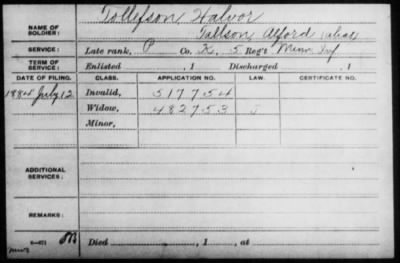 NAME OF SOLDIER: Tollefson Halvor
Tallson Alford alias
SERVICE: Late rank, P Co. K, 5 Reg't Minn Inf
TERM OF SERVICE: Enlisted , 1 Discharged , 1
DATE OF FILING. CLASS. APPLICATION NO. LAW. CERTIFICATE NO.
1884 July 12 Invalid, 517754
Widow, 482753
Minor,
ADDITIONAL SERVICES:
REMARKS:
Died , 1 , at